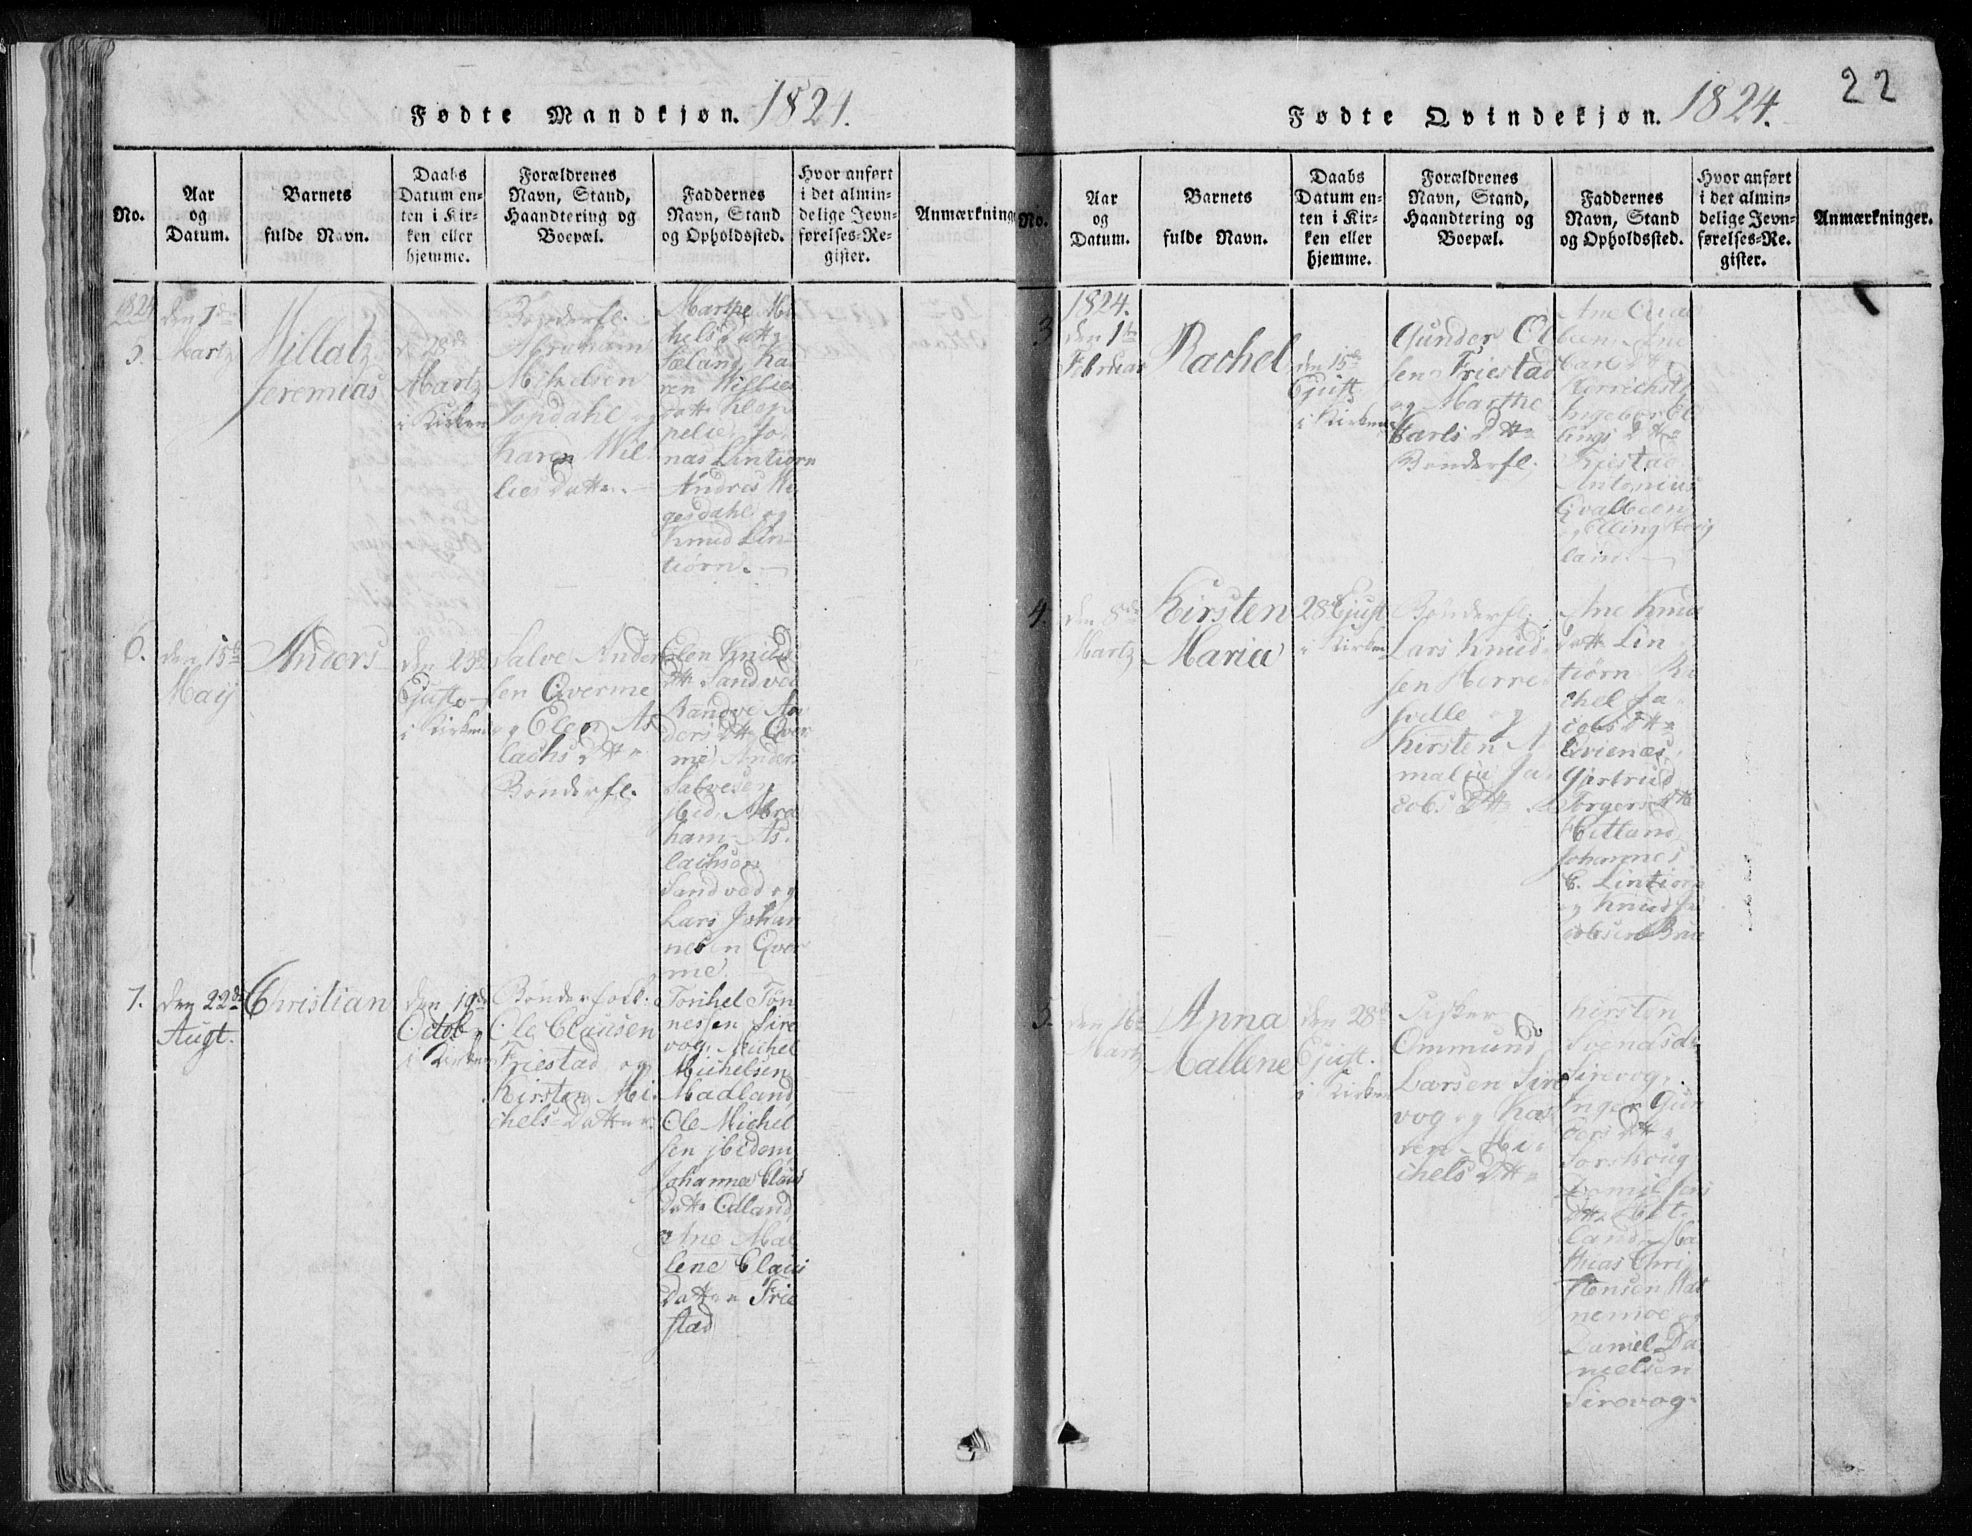 Fødte Mandkjøn. 1824.
No.
Aar
og
Datum.
Barnets
fulde Navn.
Daabs
Datum en-
ten i Kir-
ken eller
hjemme.
Forældrenes
Navn, Stand,
Haandtering og
Boepæl.
Faddernes
Navn, Stand
og Opholdssted.
Hvor anført
i det almin-
delige Jevn-
førelses-Re-
gister.
Anmærkninge
1824
5.
den 7de
Martz
Jeremias
28de
Martz
i Kirken
Bønderfl.
Abraham
Mikelsen
Jopdahl og
Karen Wil
lies Datter.
Marthe Mi
helsdatt
Karen Willies
Datt.
Jo
nas Lintiørn
Andres
gesdahl og
Knud Lin-
tiørn.
6.
den 15de
Maij
Anders
den 23de
Ejusto
i Kirken
Salve Ander
sen Qverme
og Elen As
lachs Dtt
Bønderfl.
Elen Knuds
Dtt Sandved
Randve An
ders Dtt Qver
me, Anders
Salvesen
ibid. Abra
ham As.
lachsen
Sandved og
Lars Johan
nesen Qver
me.
7.
den 22de
Augt.
Christian
den 19de
Octob
i Kirken
Bønderfolk.
Ole Clausen
Friestad og
Kirsten Mi-
chels Datter.
Torchel Tøn
nessen Sire
vog, Michel
Michelsen
Madland
Ole Michel
sen ibidem
Johanna Claus
Datt Odland
og Ane Mal
lene Claus
Datter Frie
stad
22
Fødte Qvindekjøn. 1824.
No.
Aar
og
Datum.
Barnets
fulde Navn.
Daabs
Datum en-
ten i Kir-
ken eller
hjemme.
Forældrenes
Navn, Stand,
Haandtering og
Boepæl.
Faddernes
Navn, Stand
og Opholdssted.
Hvor anført
i det almin-
delige Jevn-
førelses-Re-
gister.
Anmærkninger.
1824.
3
den 1te
Februar
Rachel
den 15de
Ejust
i Kirken
Gunder Ol
sen Friestad
og Marthe
Karls Dtt
Bønderfl.
Ane
Ingebor El
lings Dtt
Friestad
Antonius
Qvalbeen
og Elling
land.
4.
den 8de
Martz
Kirsten
Maria
28de Ejust
i Kirken
Bønderfl.
Lars Knud
sen Herre
svelle og
Kirsten A
malia Ja
cobs Dtt
Ane Knuds
Dtt Lin
tiørn, Ra
chel Ja
cobs Dtt
Qvienæs,
Gjertrud
Torgers Dtt
Hetland
Johannes
C. Lintiørn
og Knud Ja
cobsen Brue
5.
den 16de
Martz
Anna
Mallene
den 28de
Ejust.
i Kirken
Fisker
Ommund
Larsen Sire
vog og Ka
ren Mi-
chels Dtt
Kirsten
Svends D.
Sirevog,
Inger Gun
ders Dtt
Dtt Het
land, Ma
thias Chri
stensen Var
nemoe og
Daniel Da
nielsen
Sirevog.